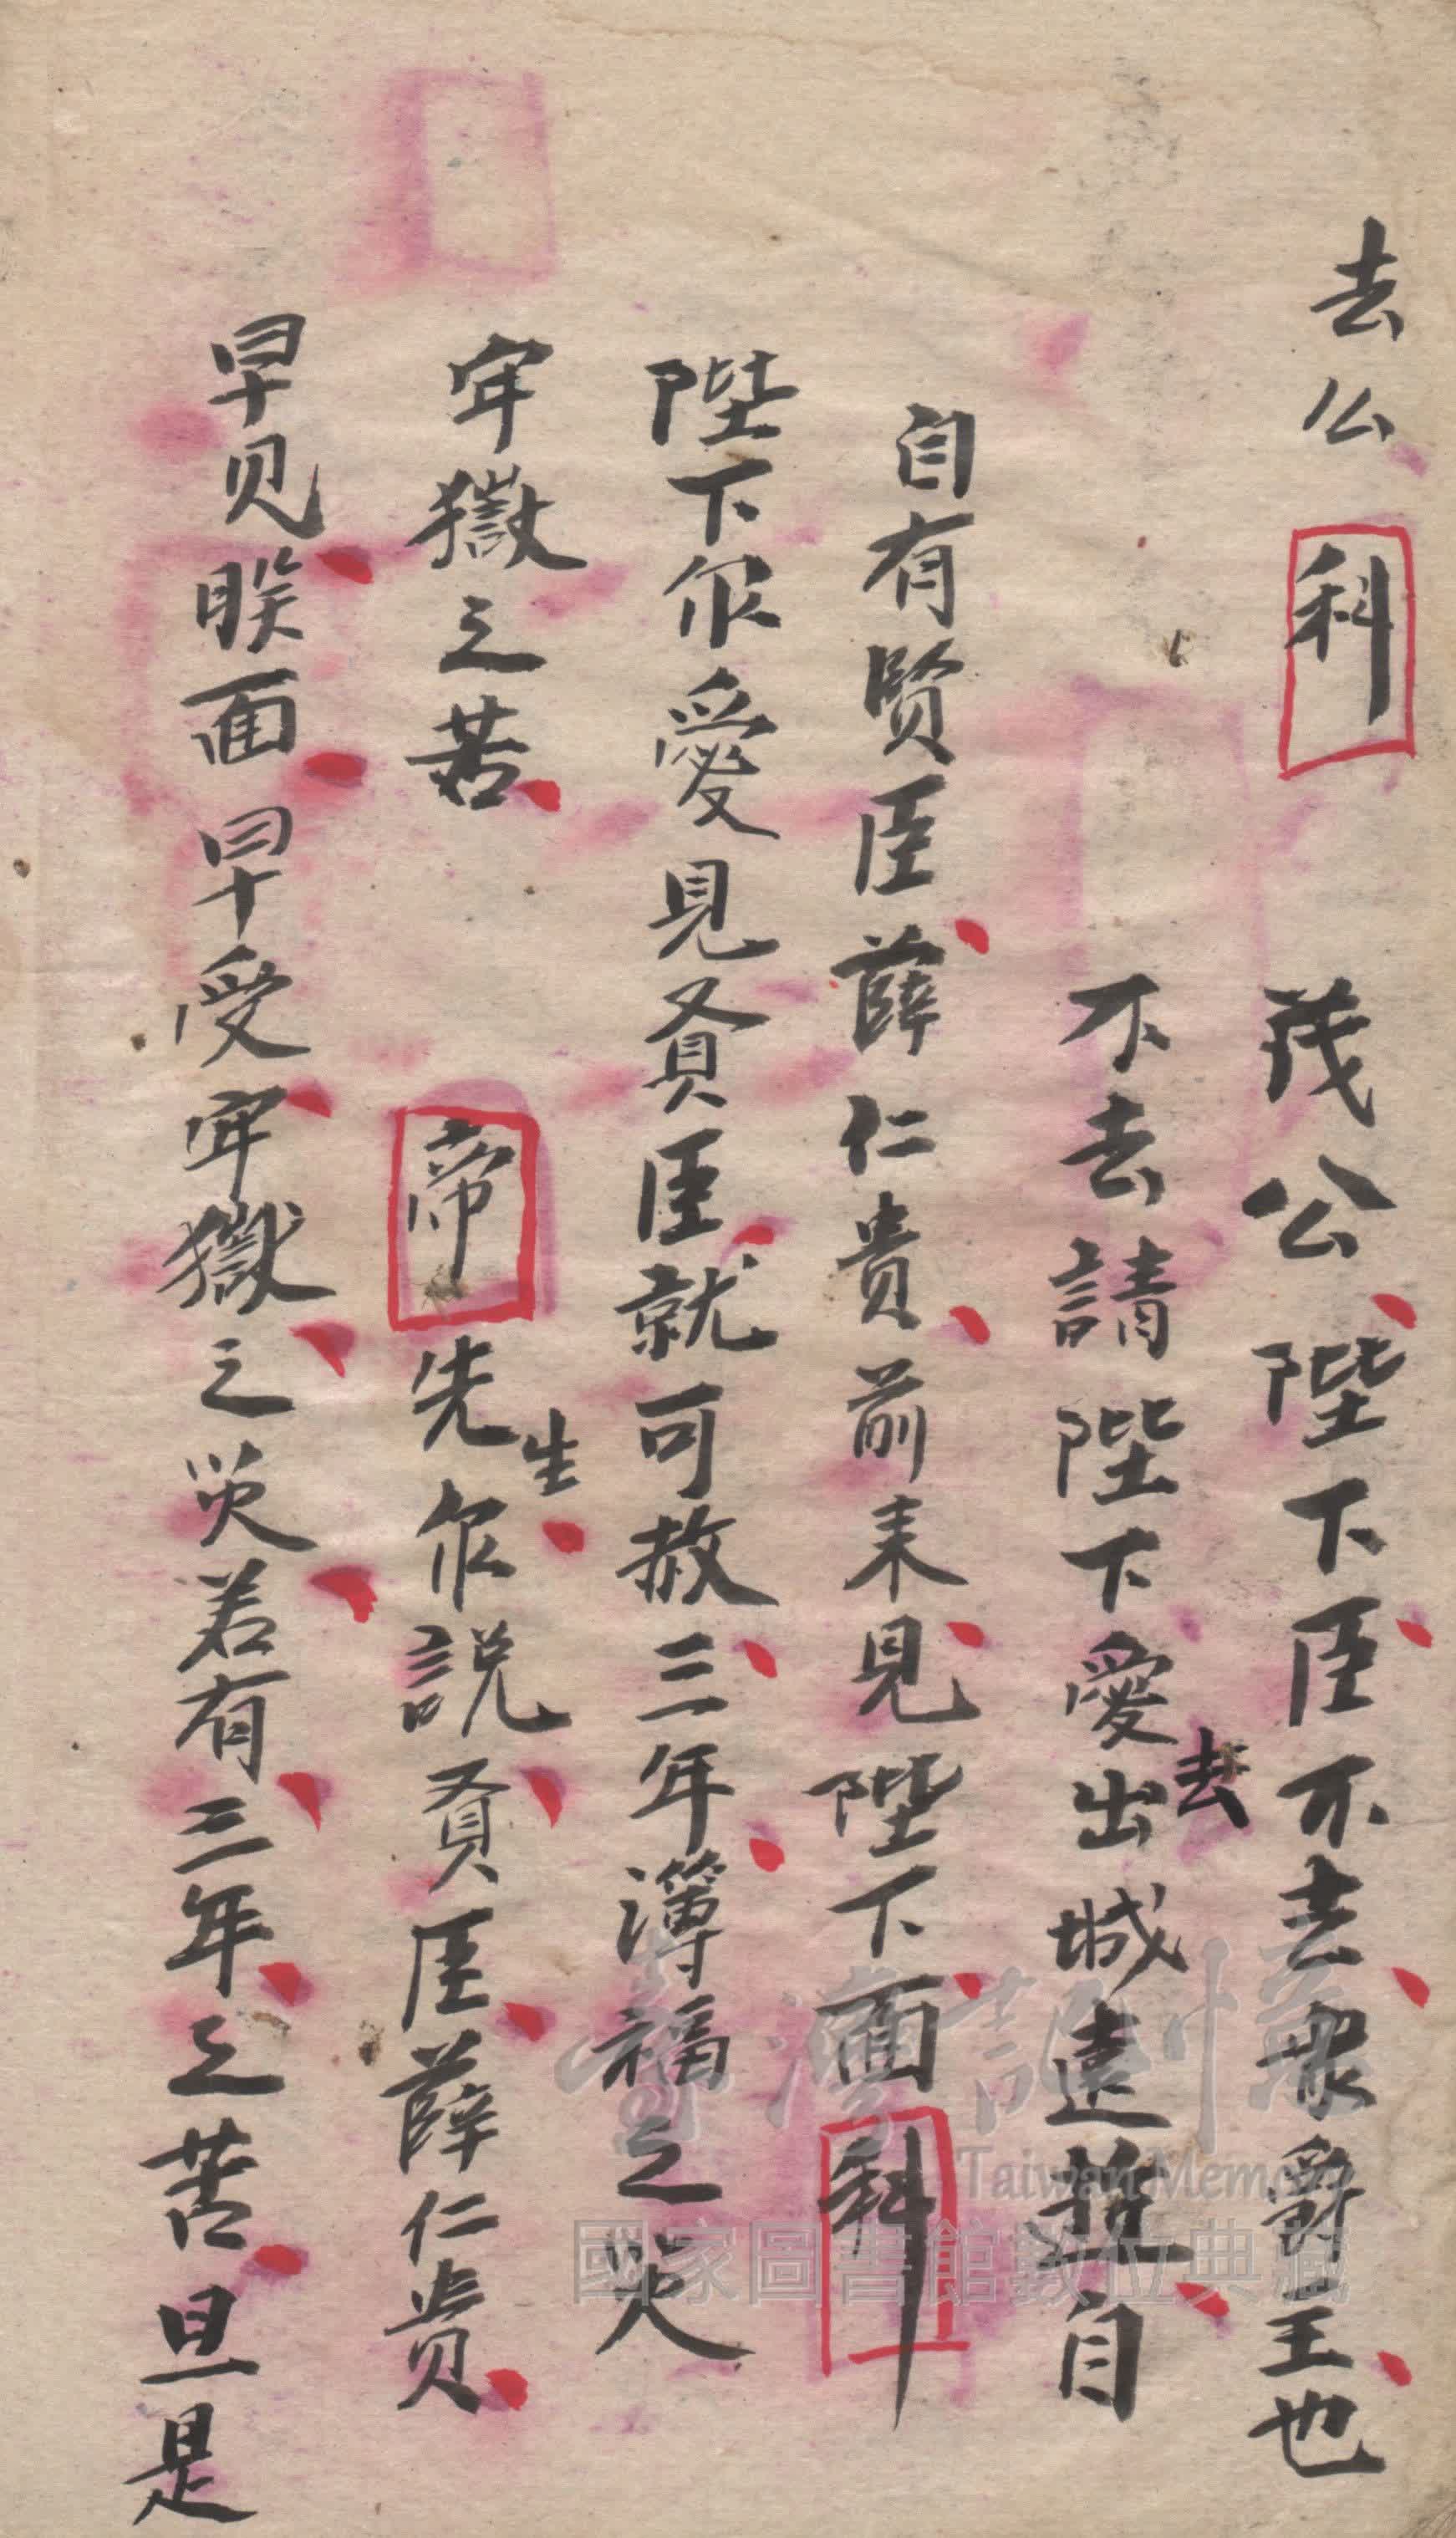 去么 科 茂公陛下臣不去衆爵王也
不去請陛下愛去出城遠遊自
自有賢臣薛仁贵前耒見陛下面 科
陛下你愛見賢臣就可赦三年簿福之災
牢獄之苦 帝 先生你説賢臣薛仁贵
早见朕面早受牢獄之災若有三年之苦旦是
臺灣記憶
Taiwan Memory
國家圖書館數位典藏